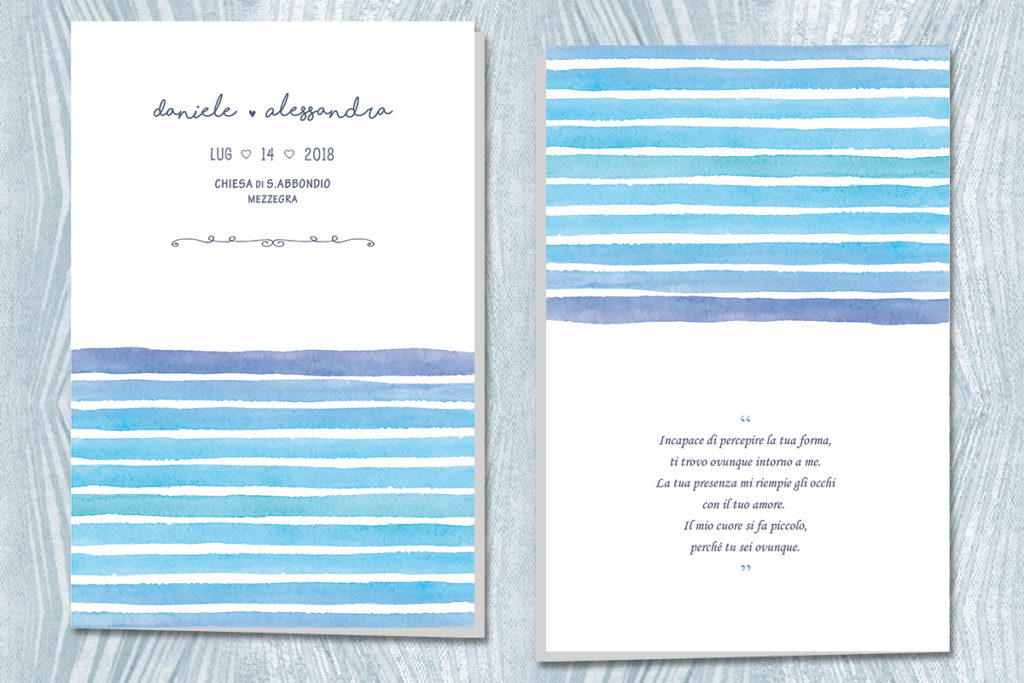 daniele ♥ alessandra
LUG ♡ 14 ♡ 2018
CHIESA DI S.ABBONDIO
MEZZEGRA
“
Incapace di percepire la tua forma,
ti trovo ovunque intorno a me.
La tua presenza mi riempie gli occhi
con il tuo amore.
Il mio cuore si fa piccolo,
perché tu sei ovunque.
”